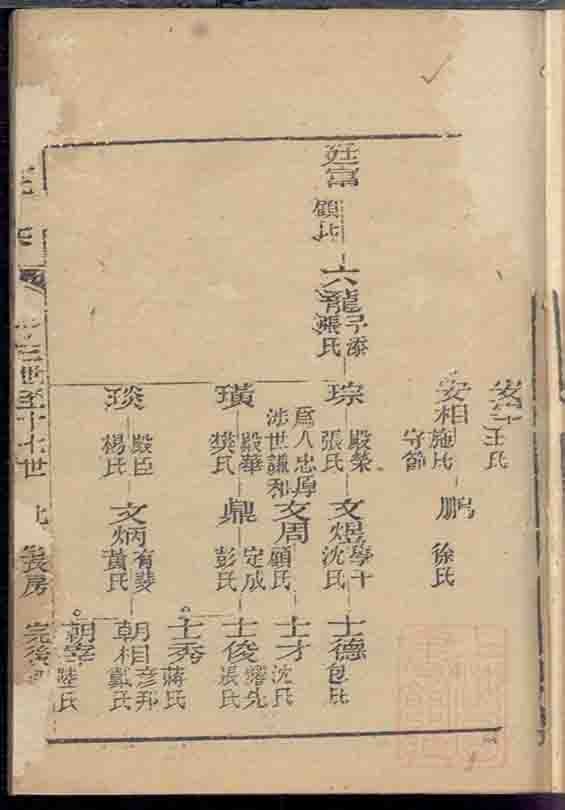 安相
施氏
守節
鵬
徐氏
王氏
廷富
顧氏
六龍
子添
張氏
琮
殿榮
張氏
文煜
學十
沈氏
士德
包氏
爲人忠厚
涉世謙和
文周
顧氏
士才
沈氏
璜
殿華
樊氏
鼎
定成
彭氏
士俊
張氏
士秀
蔣氏
琰
殿臣
楊氏
文炳
有斐
黃氏
朝相
彥邦
戴氏
朝宰
陸氏
世至十七世
長房